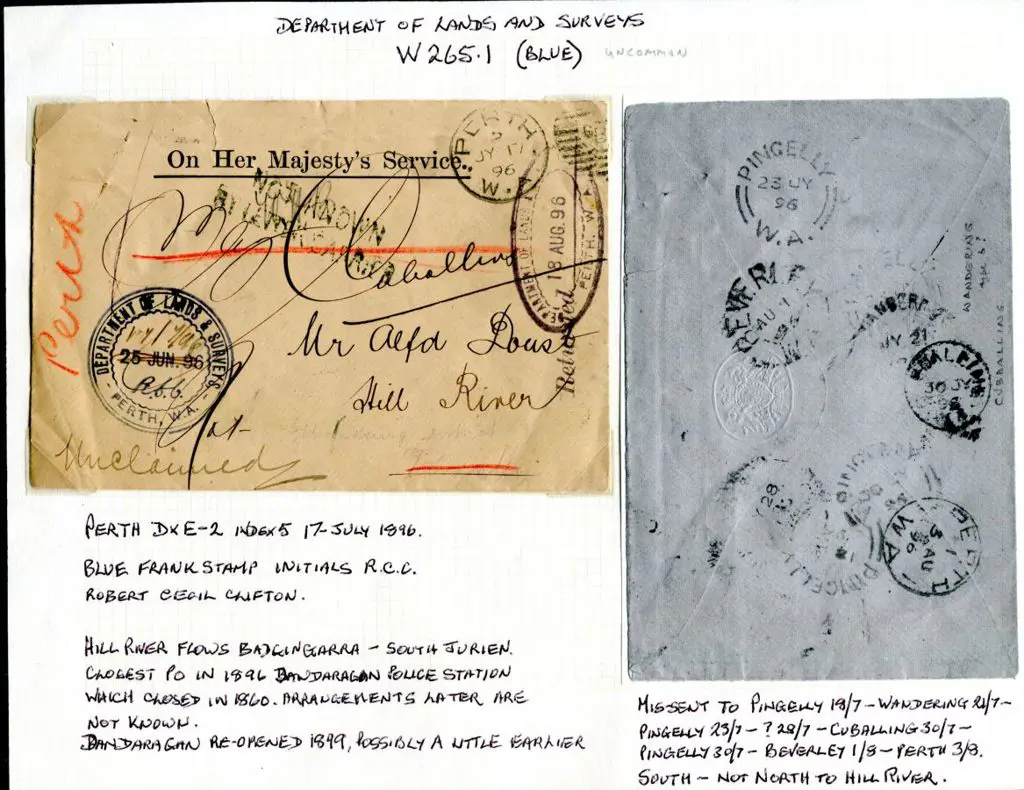 DEPARTMENT OF LANDS AND SURVEYS
W265.1 (BLUE) UNCOMMON
On Her Majesty's Service.
PERTH
JY 17
96
W.
NOT KNOWN
BY LETTER CARRIER
Perth
Caballing
DEPARTMENT OF LANDS
18 AUG. 96
PERTH-W.A.
Returned
DEPARTMENT OF LANDS & SURVEYS
25 JUN. 96
R.C.C.
PERTH, W.A.
Mr Alfd
Hill River
Unclaimed
PINGELLY
23 JY
96
W.A.
BEVERLEY
AU 1
JY 21
WANDERING
CUBALLING
30 JY
28
PINGELLY
PERTH
3 AU
96
W A
PERTH DXE-2 INDEX5 17-JULY 1896.
BLUE FRANK STAMP INITIALS R.C.C.
ROBERT CECIL CLIFTON.
HILL RIVER FLOWS BADGINGARRA - SOUTH JURIEN.
CLOSEST PO IN 1896 DANDARAGAN POLICE STATION
WHICH CLOSED IN 1860. ARRANGEMENTS LATER ARE
NOT KNOWN.
DANDARAGAN RE-OPENED 1899, POSSIBLY A LITTLE EARLIER
MISSENT TO PINGELLY 18/7 - WANDERING 21/7 -
PINGELLY 23/7 - ? 28/7 - CUBALLING 30/7 -
PINGELLY 30/7 - BEVERLEY 1/8 - PERTH 3/8.
SOUTH - NOT NORTH TO HILL RIVER.